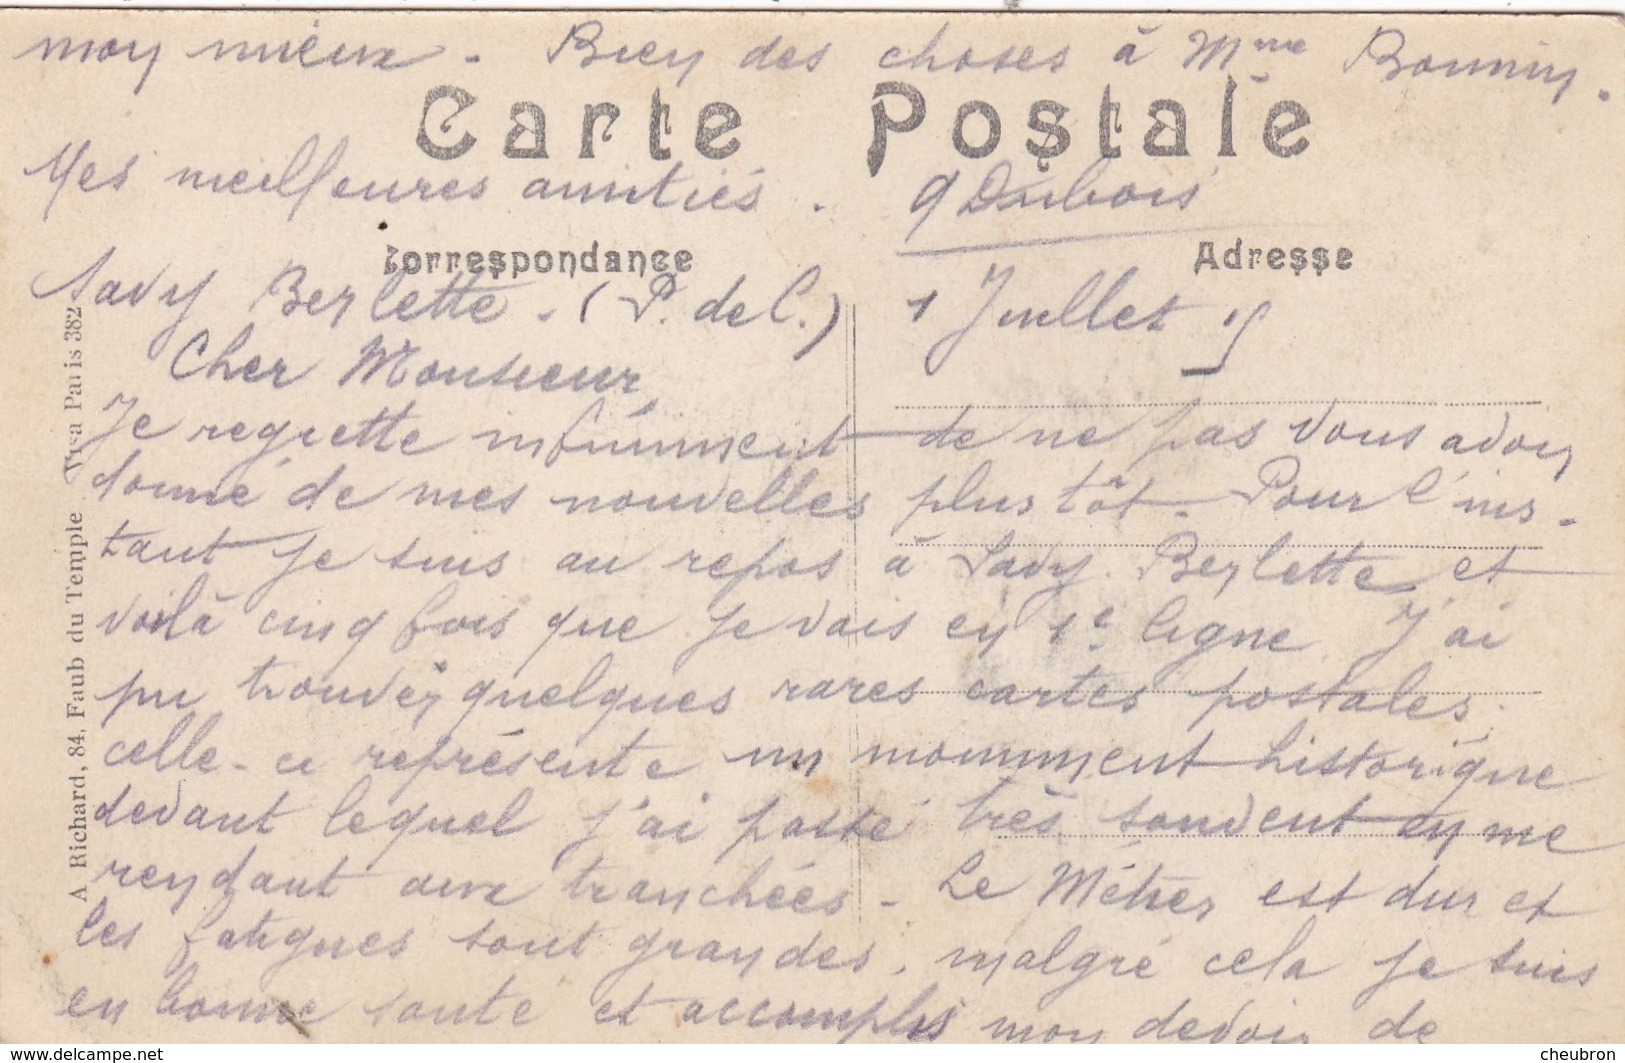 mon mieux - Bien des choses à Mme Bonnin.
Carte Postale
Mes meilleures amitiés. G Dubois
Correspondance
Adresse
Savy Berlette - (P. de C.) 1 Juillet 15
Cher Monsieur
Je regrette infiniment de ne pas vous avoir
donné de mes nouvelles plus tôt. Pour l'ins-
tant je suis au repos à Savy Berlette et
voilà cinq fois que je vais en 1e ligne. J'ai
pu trouver quelques rares cartes postales.
celle-ci représente un monument historique
devant lequel j'ai passé très souvent en me
rendant aux tranchées - Le Métier est dur et
les fatigues sont grandes, malgré cela je suis
en bonne santé et accomplis mon devoir de
A Richard, 84, Faub du Temple. Visa Paris 382
cheubron.com